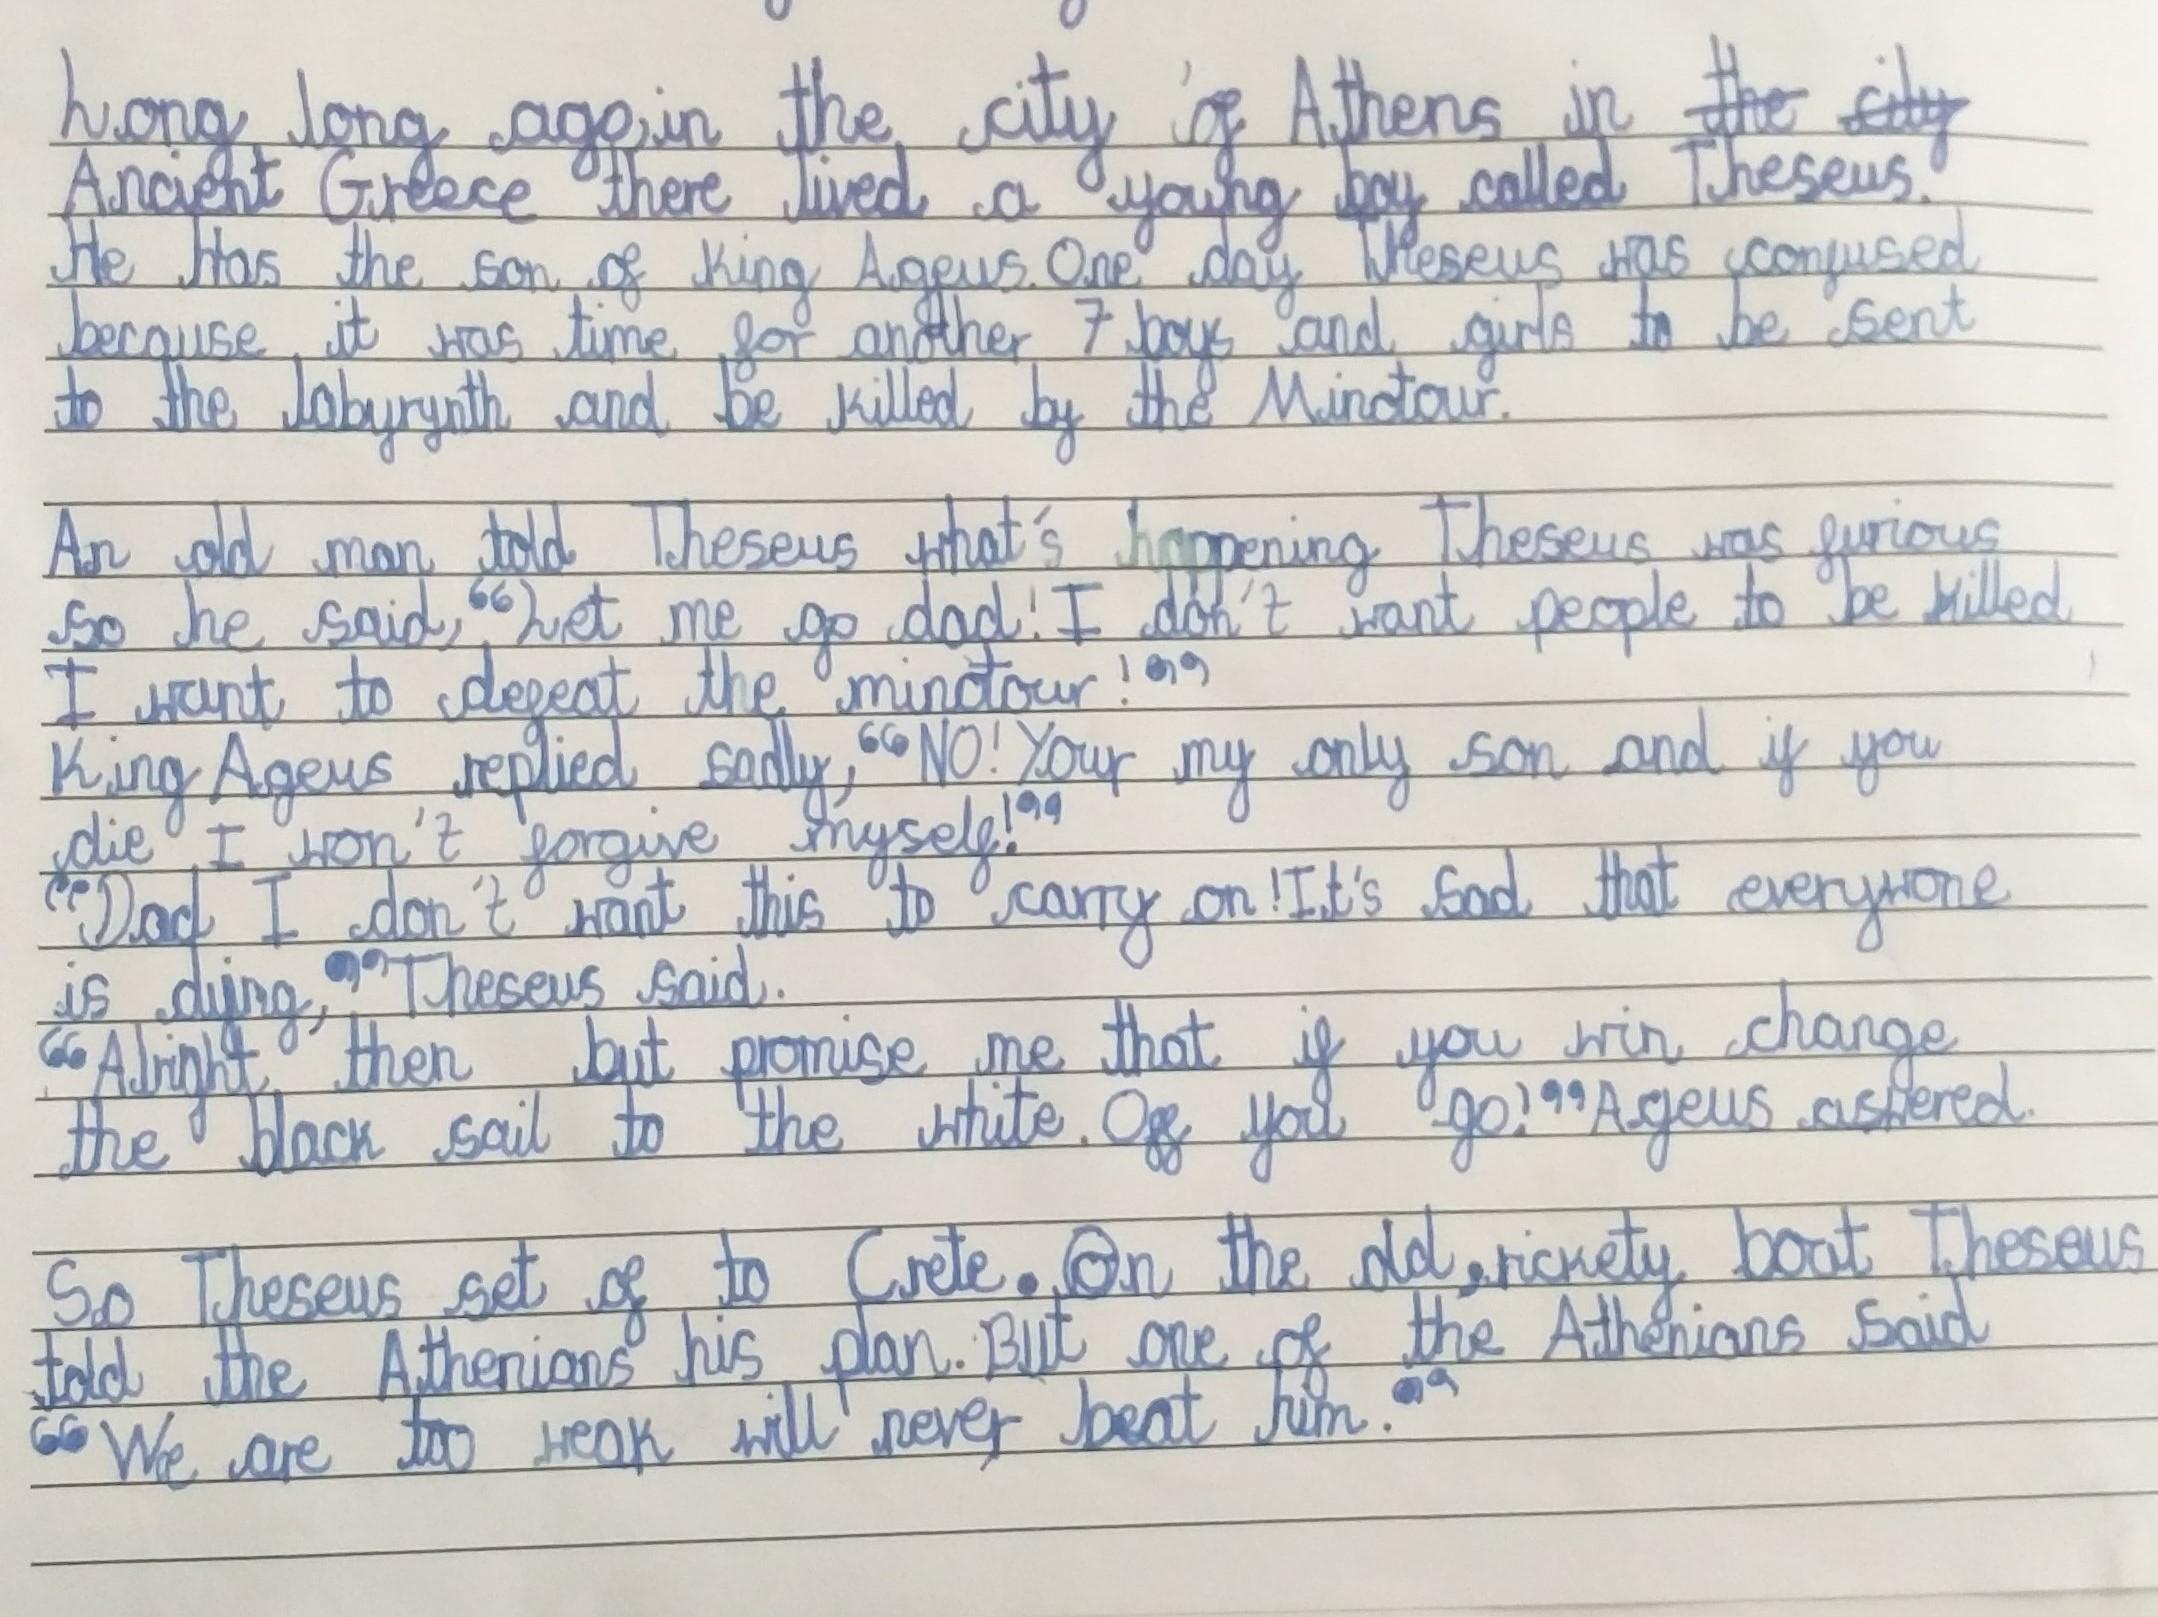 Long long ago,in the city of Athens in the city
Ancient Greece there lived a young boy called Theseus.
He was the son of King Ageus. One day Theseus was confused
because it was time for another 7 boys and girls to be sent
to the labyrynth and be killed by the Minotaur.
An old man told Theseus what's happening Theseus was furious
so he said, "Let me go dad! I don't want people to be killed
I want to defeat the minotour!"
King Ageus replied sadly, "NO! Your my only son and if you
die I won't forgive myself!"
"Dad I don't want this to carry on! It's sad that everywone
is dying," Theseus said.
"Alright then but promise me that if you win change
the black sail to the white. Off you go!" Ageus aswered.
So Theseus set of to Crete. On the old, rickety boat Theseus
told the Athenians his plan. But one of the Athenians said
"We are too weak will never beat him."